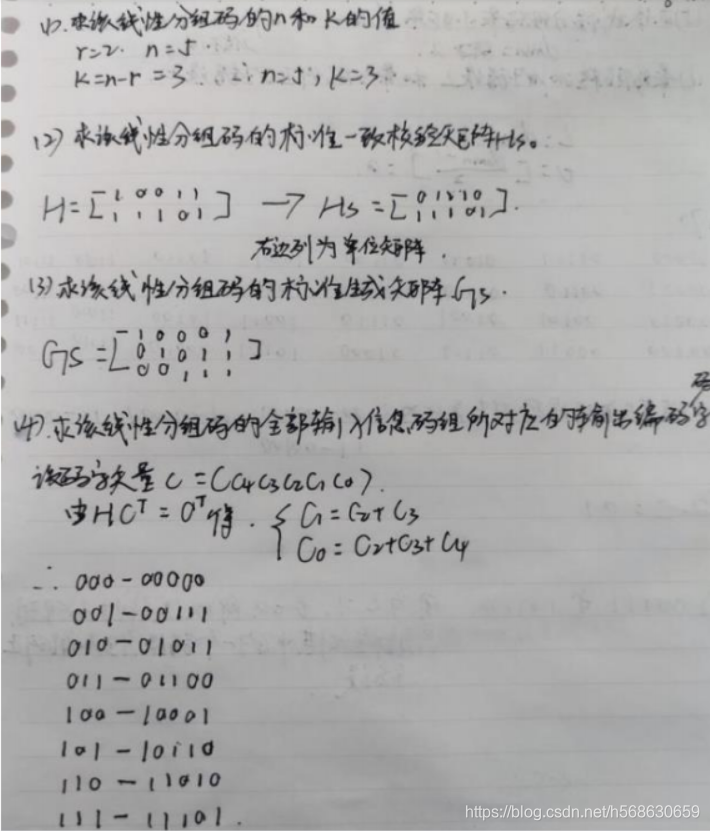 (1). 求该线性分组码的n和K的值.
r=2. n=5
K=n-r=3. ∴ n=5, K=3
(2) 求该线性分组码的标准一致校验矩阵Hs。
H=[1 0 0 1 1 → Hs=[0 1 1 1 0
1 1 1 0 1] 1 1 1 0 1].
右边列为单位矩阵.
(3) 求该线性分组码的标准生成矩阵Gs.
Gs=[1 0 0 0 1
0 1 0 1 1
0 0 1 1 1]
(4). 求该线性分组码的全部输入信息码组所对应的输出编码码字
该码字矢量 C=(C4C3C2C1C0).
由HCᵀ=0ᵀ得. { C1=C2+C3
C0=C2+C3+C4
∴ 000-00000
001-00111
010-01011
011-01100
100-10001
101-10110
110-11010
111-11101.
https://blog.csdn.net/h568630659